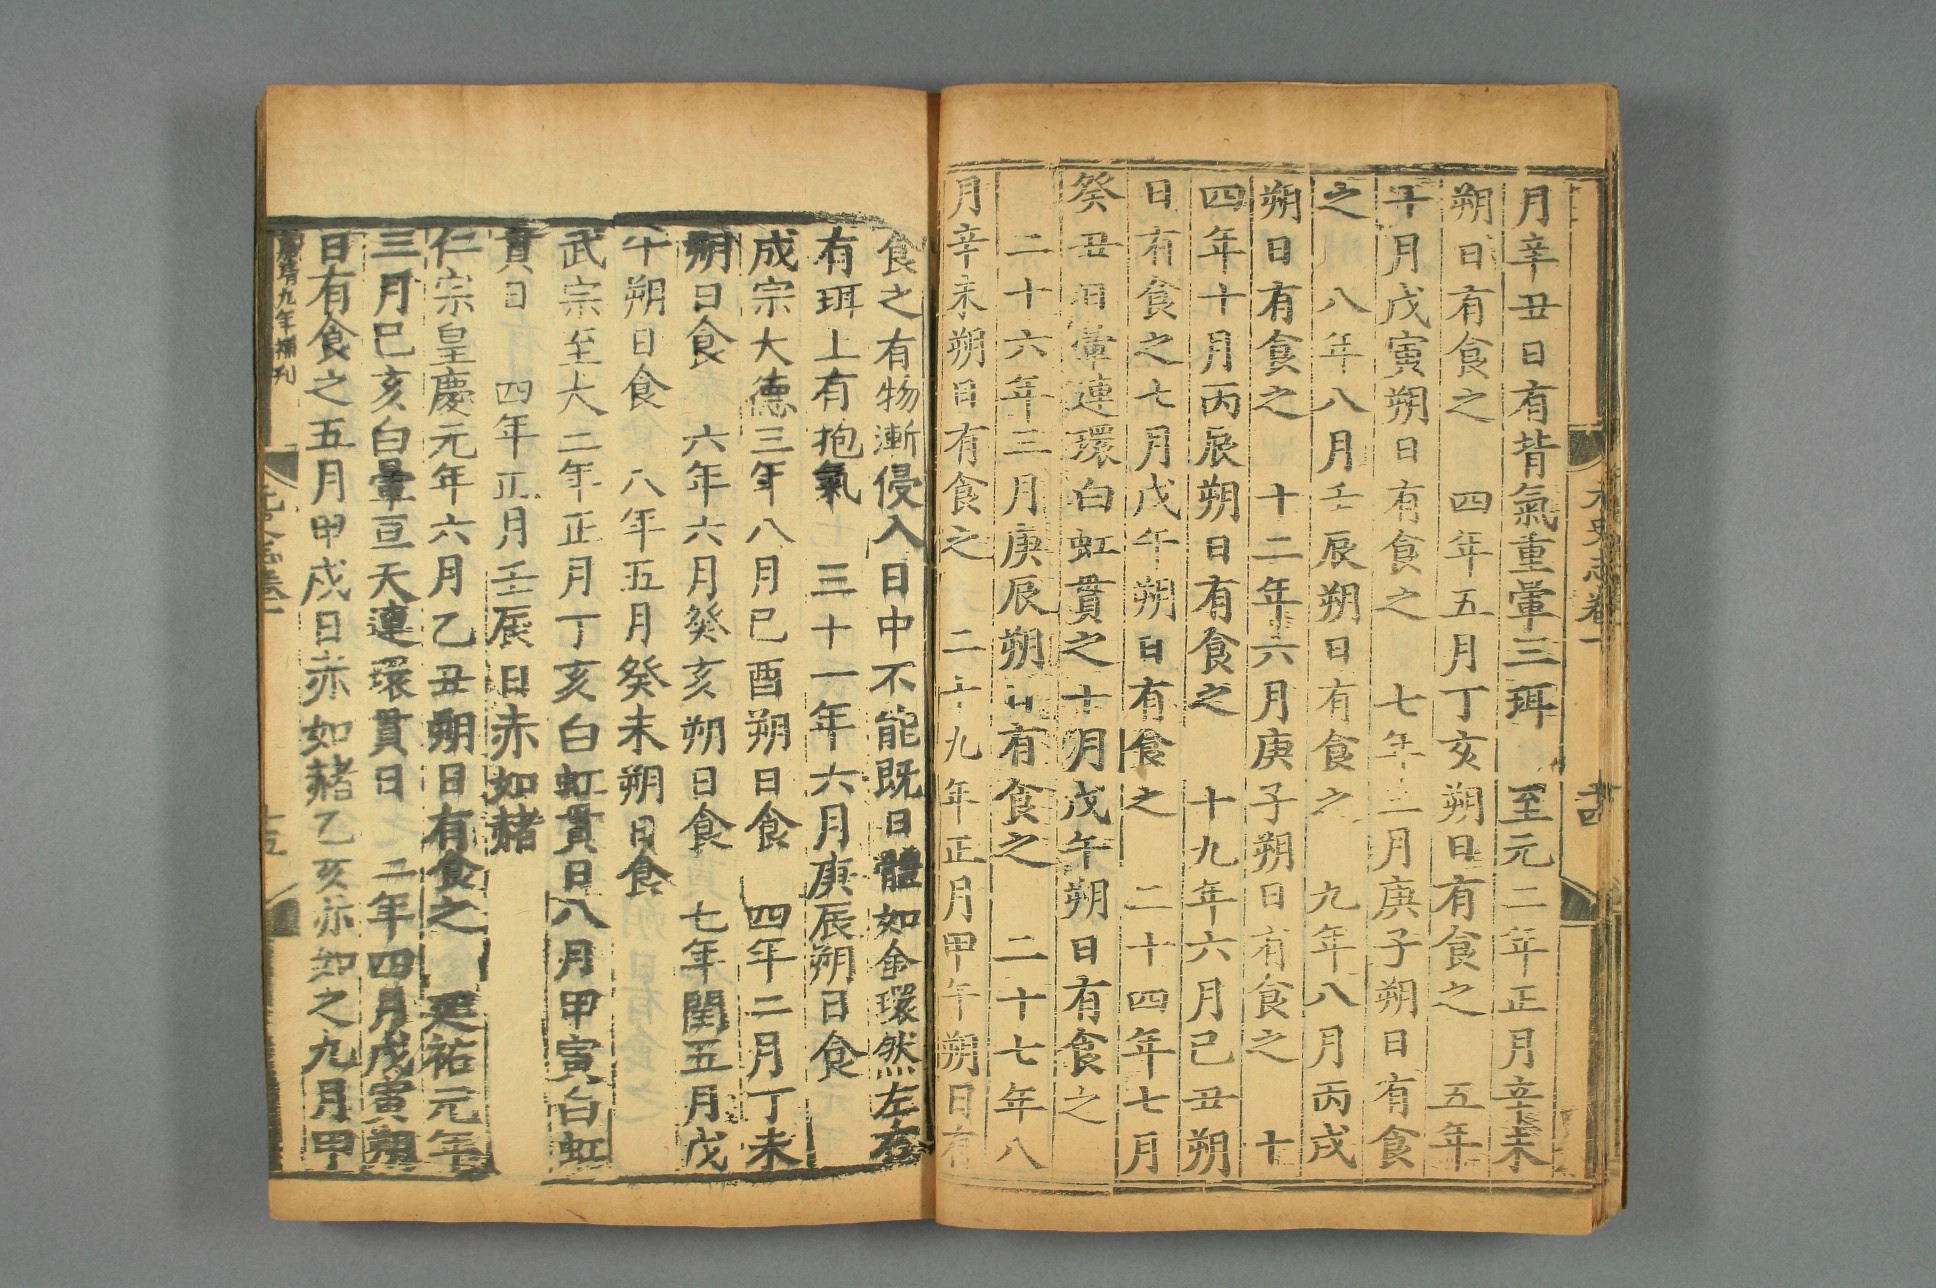 元史志卷一
十四
月辛丑日有背氣重暈三珥　至元二年正月辛未
朔日有食之　四年五月丁亥朔日有食之　五年
十月戊寅朔日有食之　七年三月庚子朔日有食
之　八年八月壬辰朔日有食之　九年八月丙戌
朔日有食之　十二年六月庚子朔日有食之　十
四年十月丙辰朔日有食之　十九年六月己丑朔
日有食之七月戊午朔日有食之　二十四年七月
癸丑日暈連環白虹貫之十月戊午朔日有食之
二十六年三月庚辰朔日有食之　二十七年八
月辛未朔日有食之　二十九年正月甲午朔日有
食之有物漸侵入日中不能既日體如金環然左右
有珥上有抱氣　三十一年六月庚辰朔日食
成宗大德三年八月己酉朔日食　四年二月丁未
朔日食　六年六月癸亥朔日食　七年閏五月戊
午朔日食　八年五月癸未朔日食
武宗至大二年正月丁亥白虹貫日八月甲寅白虹
貫日　四年正月壬辰日赤如赭
仁宗皇慶元年六月乙丑朔日有食之　延祐元年
三月己亥白暈亘天連環貫日　二年四月戊寅朔
日有食之五月甲戌日赤如赭乙亥亦如之九月甲
嘉靖九年補刊
元史志卷一
十五